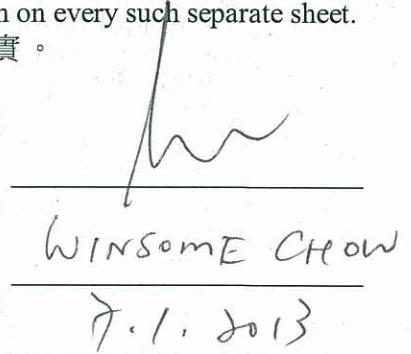 on every such separate sheet.
實。
WINSOME CHOW
7.1.2013